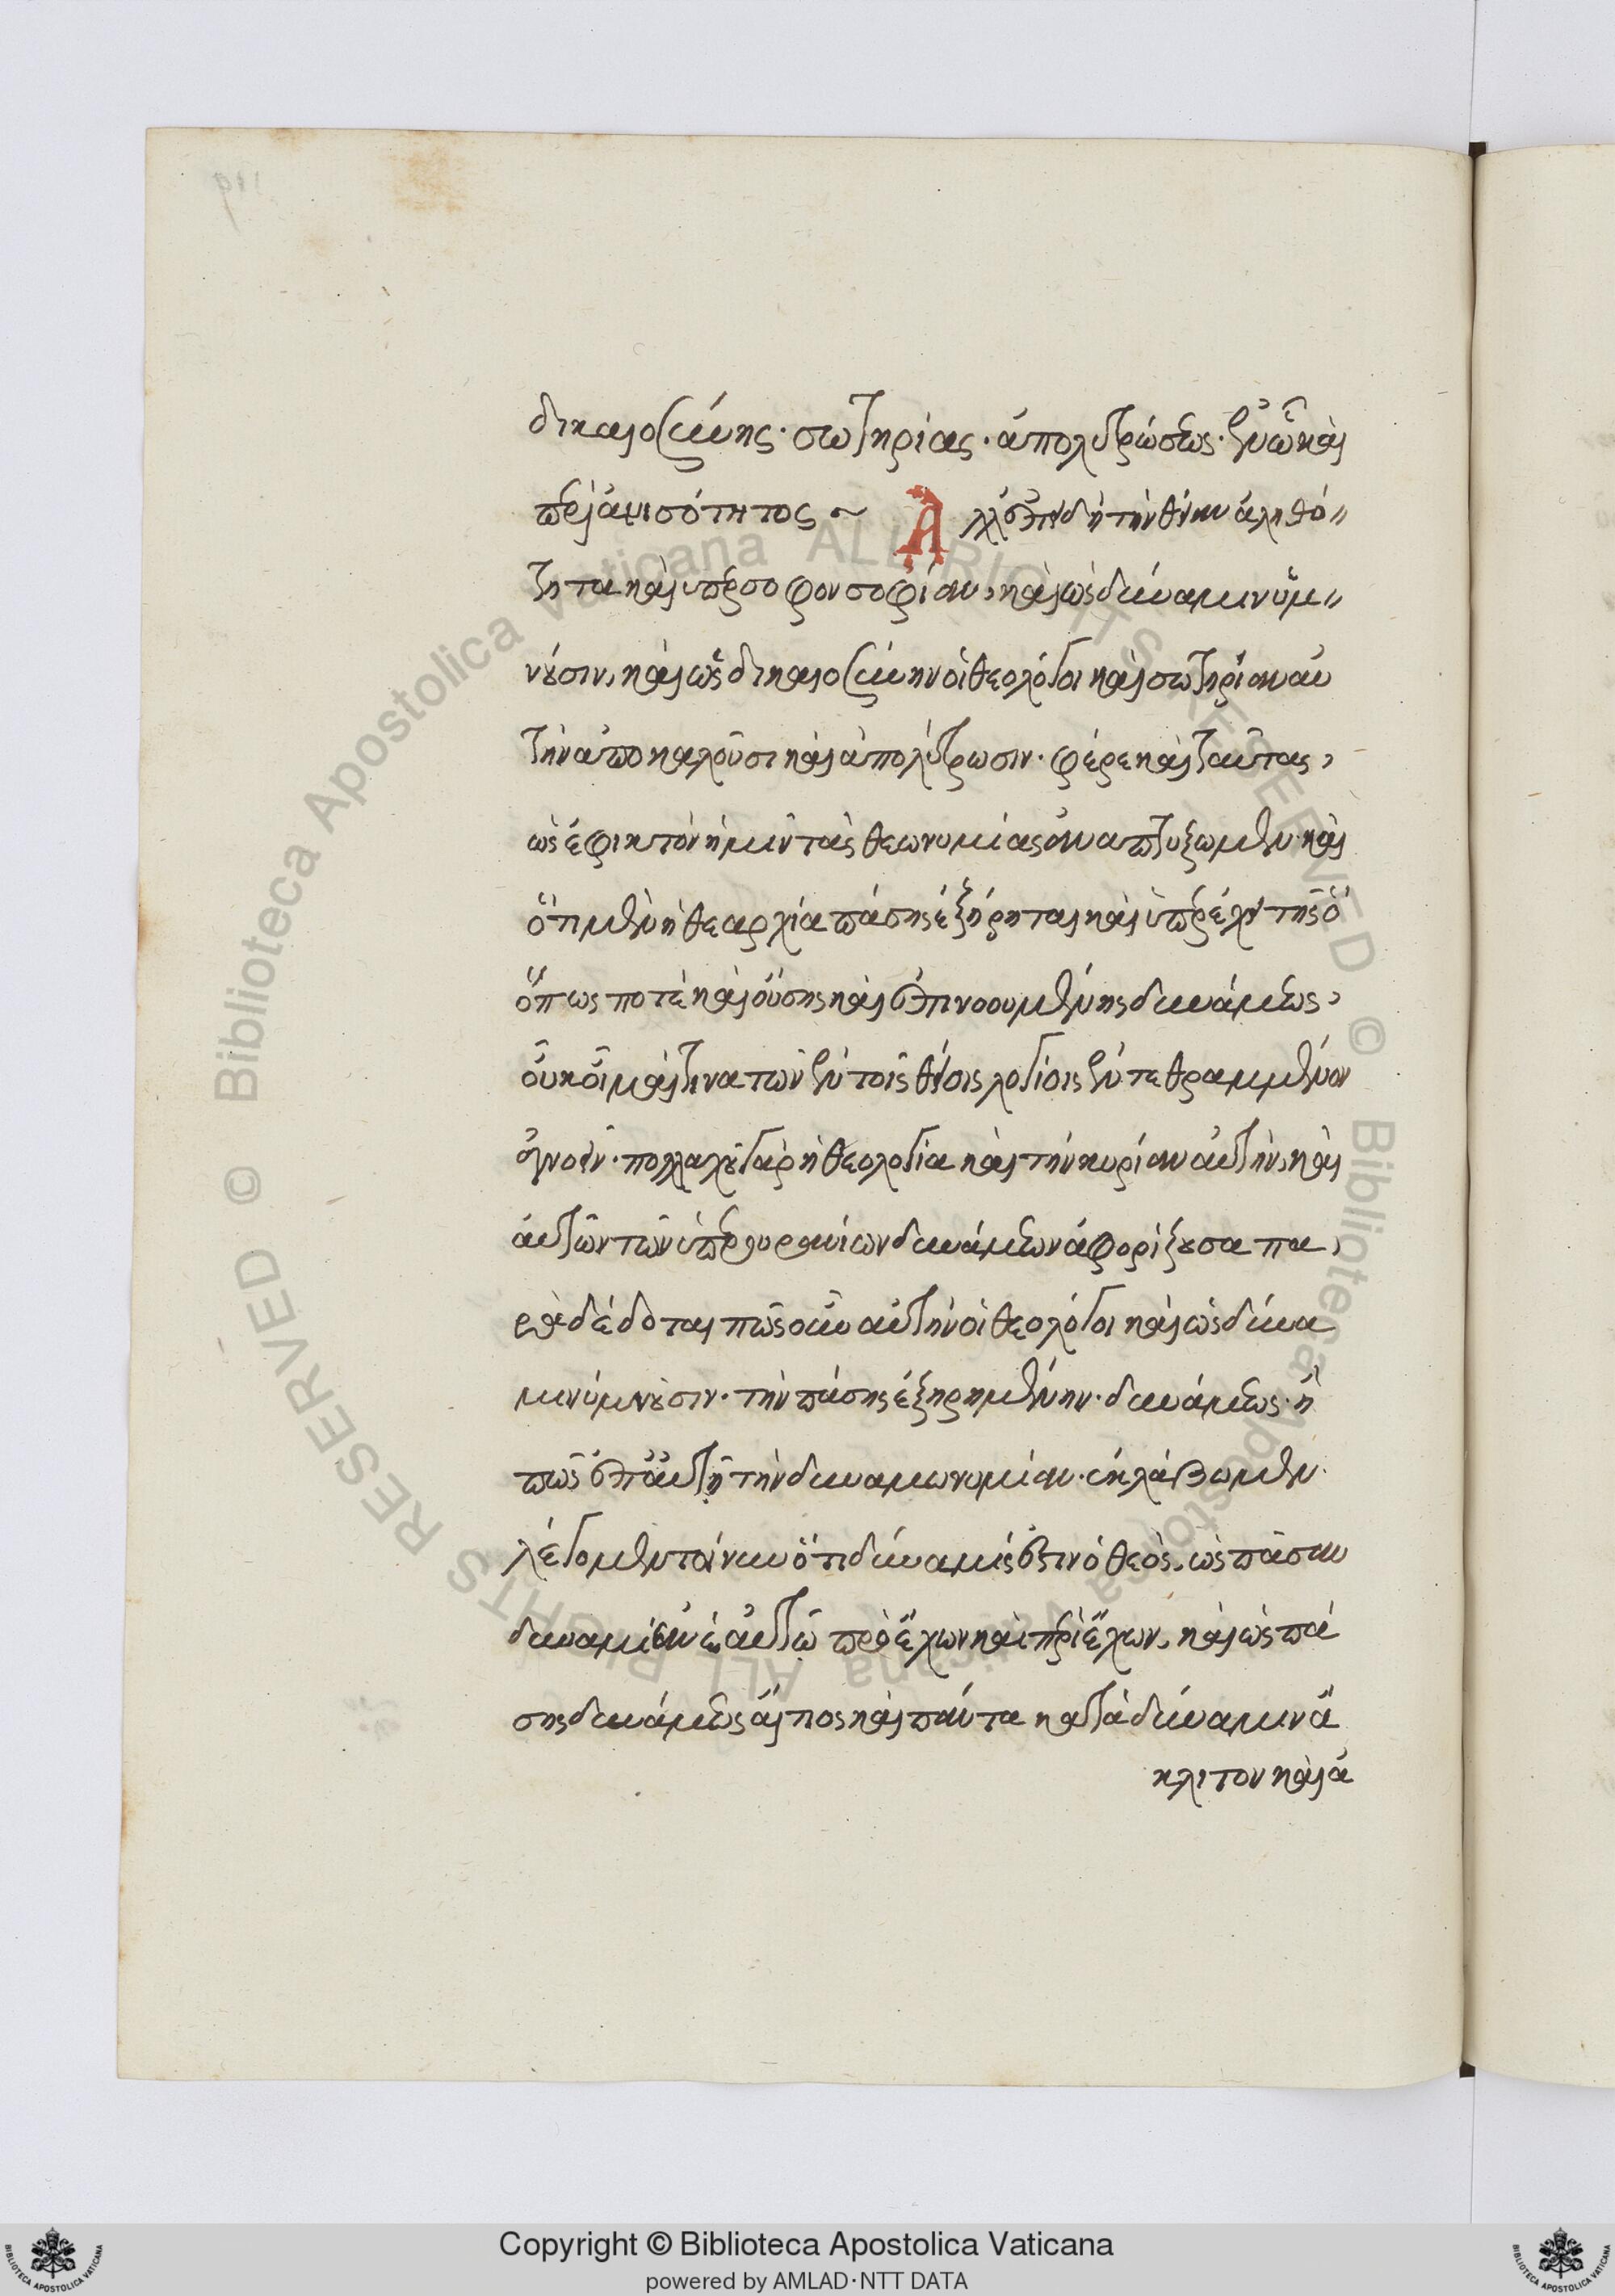 δικαιοσύνης· σωτηρίας· ἀπολυτρώσεως· ἐν ᾧ καὶ
περὶ ἀνισότητος ~ Ἀλλ' ἐπειδὴ τὴν θείαν ἀληθό〃
τητα καὶ ὑπέρσοφον σοφίαν, καὶ ὡς δύναμιν ὑμ〃
νοῦσιν, καὶ ὡς δικαιοσύνην οἱ θεολόγοι καὶ σωτηρίαν αὐ
τὴν ἀποκαλοῦσι καὶ ἀπολύτρωσιν· φέρε καὶ ταύτας,
ὡς ἐφικτὸν ἡμῖν τὰς θεωνυμίας ἀναπτύξωμεν· καὶ
ὅτι μὲν ἡ θεαρχία πάσης ἐξήρηται καὶ ὑπερέχει τῆς ὁ
ὅπως ποτὲ καὶ οὔσης καὶ ἐπινοουμένης δυνάμεως,
οὐκ οἶμαί τινα τῶν ἐν τοῖς θείοις λογίοις ἐντεθραμμένον
ἀγνοεῖν· πολλαχοῦ γὰρ ἡ θεολογία καὶ τὴν κυρίαν αὐτὴν, καὶ
αὐτῶν τῶν ὑπερουρανίων δυνάμεων ἀφορίζουσα πα,
ραδέδοται πῶς οὖν αὐτὴν οἱ θεολόγοι καὶ ὡς δύνα
μιν ὑμνοῦσιν· τὴν πάσης ἐξῃρημένην· δυνάμεως· ἢ
πῶς ἐπ' αὐτῇ τὴν δυναμωνυμίαν· ἐκλάβωμεν·
λέγομεν τοίνυν ὅτι δύναμίς ἐστιν ὁ θεός, ὡς πᾶσαν
δύναμιν ἐν ἑαυτῷ προέχων καὶ περιέχων, καὶ ὡς πά
σης δυνάμεως αἴτιος καὶ πάντα κατὰ δύναμιν ἄ
κλιτον καὶ ἀ
Copyright © Biblioteca Apostolica Vaticana
powered by AMLAD·NTT DATA